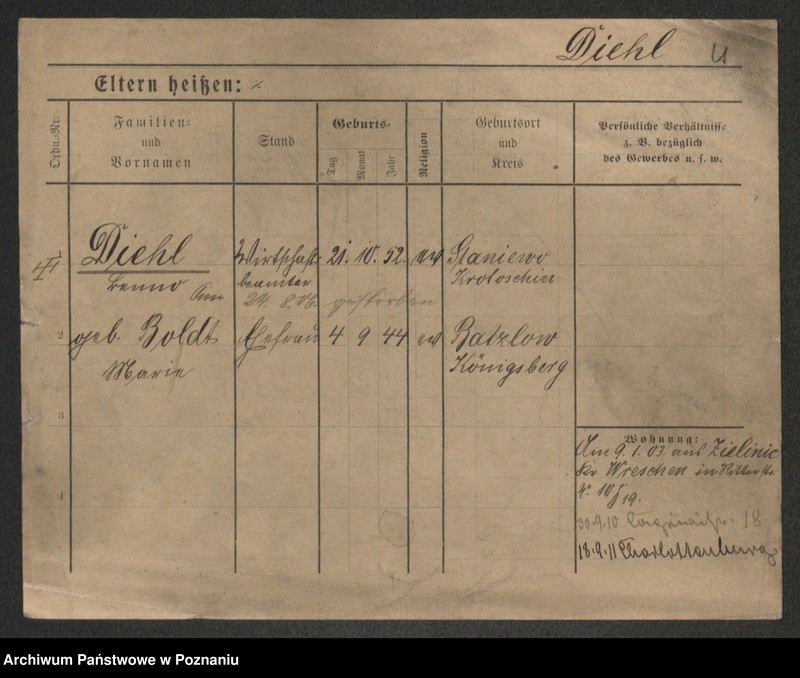 Diehl U
Eltern heißen: %
Ordn.-Nr.
Familien- und Vornamen
Stand
Geburts-
Tag
Monat
Jahr
Religion
Geburtsort und Kreis
Persönliche Verhältnisse
z. B. bezüglich
des Gewerbes u. s. w.
1 Diehl Wirtschafts- 21. 10. 52. ev Staniewo
Benno beamter Krotoschin
Am 24. 8. 06. gestorben
2 geb. Boldt Ehefrau 4 9 44 ev Batzlow
Marie Königsberg
3
4
Wohnung:
Am 9. 1. 03. aus Zielinic
Kr Wreschen in Ritterstr.
10 19.
30.9.10 18
18.9.11 Charlottenburg
Archiwum Państwowe w Poznaniu